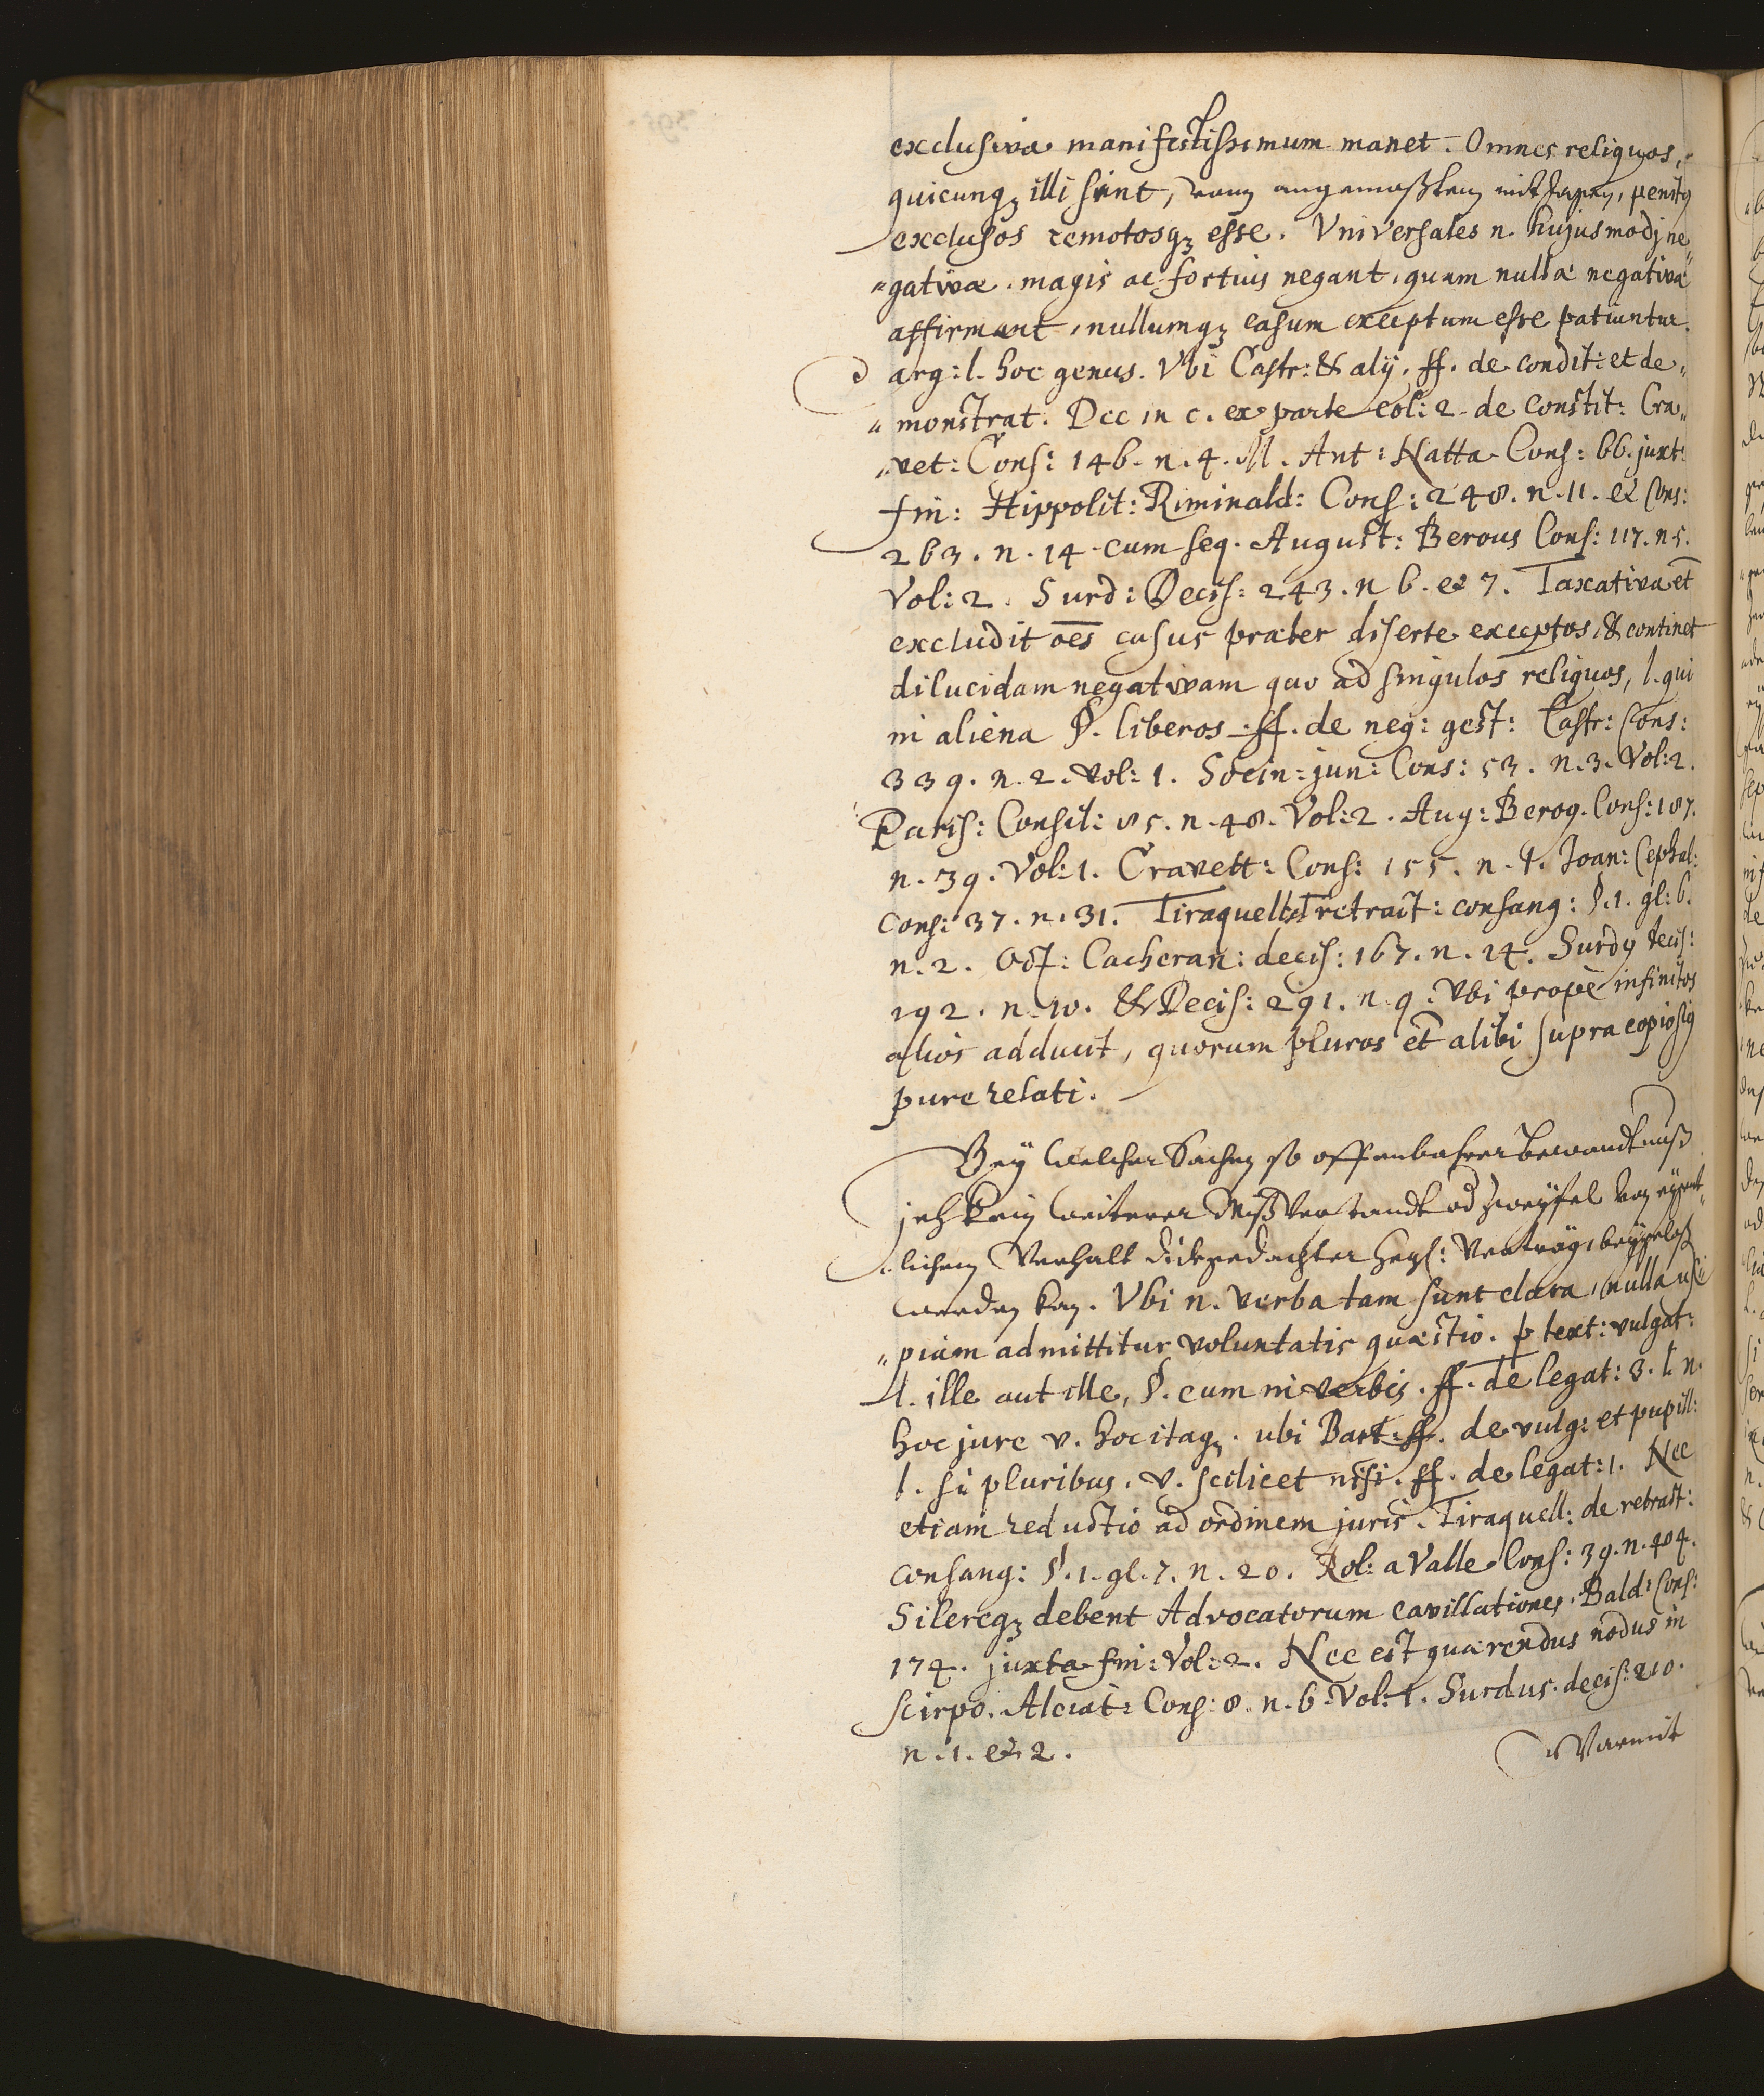 exclusiva manifestissimum manet. Omnes reliquos,
quicunqȝ illi sint, vom angemaßten mit Jagen, penitꝰ
exclusos remotosqȝ esse. Vniversales n. hujusmodj ne„
„gativæ. magis ac fortius negant, quam nullæ negativæ
affirmant, nullumqȝ casum exceptum esse patiuntur.
arg: l. hoc genus. Vbi Castr: & alÿ. ff. de condit: et de„
„monstrat. Dec in c. ex parte col: 2. de constit: Cra„
„vet: Cons: 146. n. 4. M. Ant: Natta Cons: 66. juxt:
fin: Hippolit: Riminald: Cons: 248. n. 11. et Cons:
263. n. 14. cum seq. August: Berous Cons: 117. n. 5.
Vol: 2. Surd: Decis: 243. n 6. et 7. Taxativa et
excludit oēs casus præter diserte exceptos, & continet
dilucidam negativam quo ad singulos reliquos, l. qui
in aliena §. liberos ff. de neg: gest: Castr: Cons:
339. n. 2. Vol: 1. Socin: jun: Cons: 53. n. 3. Vol: 2.
Paris: Consil: 85. n. 48. Vol: 2. Aug: Beroꝰ. Cons: 187.
n. 39. Vol: 1. Cravett: Cons: 155. n. 1. Joan: Cephal:
Cons: 37. n. 31. Tiraquell: retract: consang: §. 1. gl: 6.
n. 2. Oct: Cacheran: decis: 167. n. 14. Surdꝰ decis:
192. n. 10. & Decis: 291. n. 9. Vbi propè infinitos
alios adducit, quorum plures et alibi supra copiosiꝰ
pure relati.
Beÿ welcher Sachen so offenbahrer bewandtnuß
ich kein weiterer Mißverstandt od Zweÿfel von eÿgent„
„lichem Verhalt dickgedachter Verträg,
werden kan. Vbi n. verba tam sunt clara, nulla usq̃
„piam admittitur voluntatis quæstio. p text: vulgat:
l. ille aut ille, §. cum in verbis. ff. de legat: 3. l. n.
hoc jure v. hoc itaqȝ. ubi Bart: ff. de vulg: et pupill:
l. si pluribus. v. scilicet nisi. ff. de legat: 1. Nec
etiam reductio ad ordinem juris. Tiraquell: de retract:
consang: §. 1. gl. 7. n. 20. Rol: a Valle Cons: 39. n. 404.
Silereqȝ debent Advocatorum cavillationes. Bald: Cons:
174. juxta fin: Vol: 2. Nec est quærendus nodus in
scirpo. Alciat: Cons: 8. n. 6. Vol: 1. Surdus. decis: 210.
n. 1. et 2.
Warmit